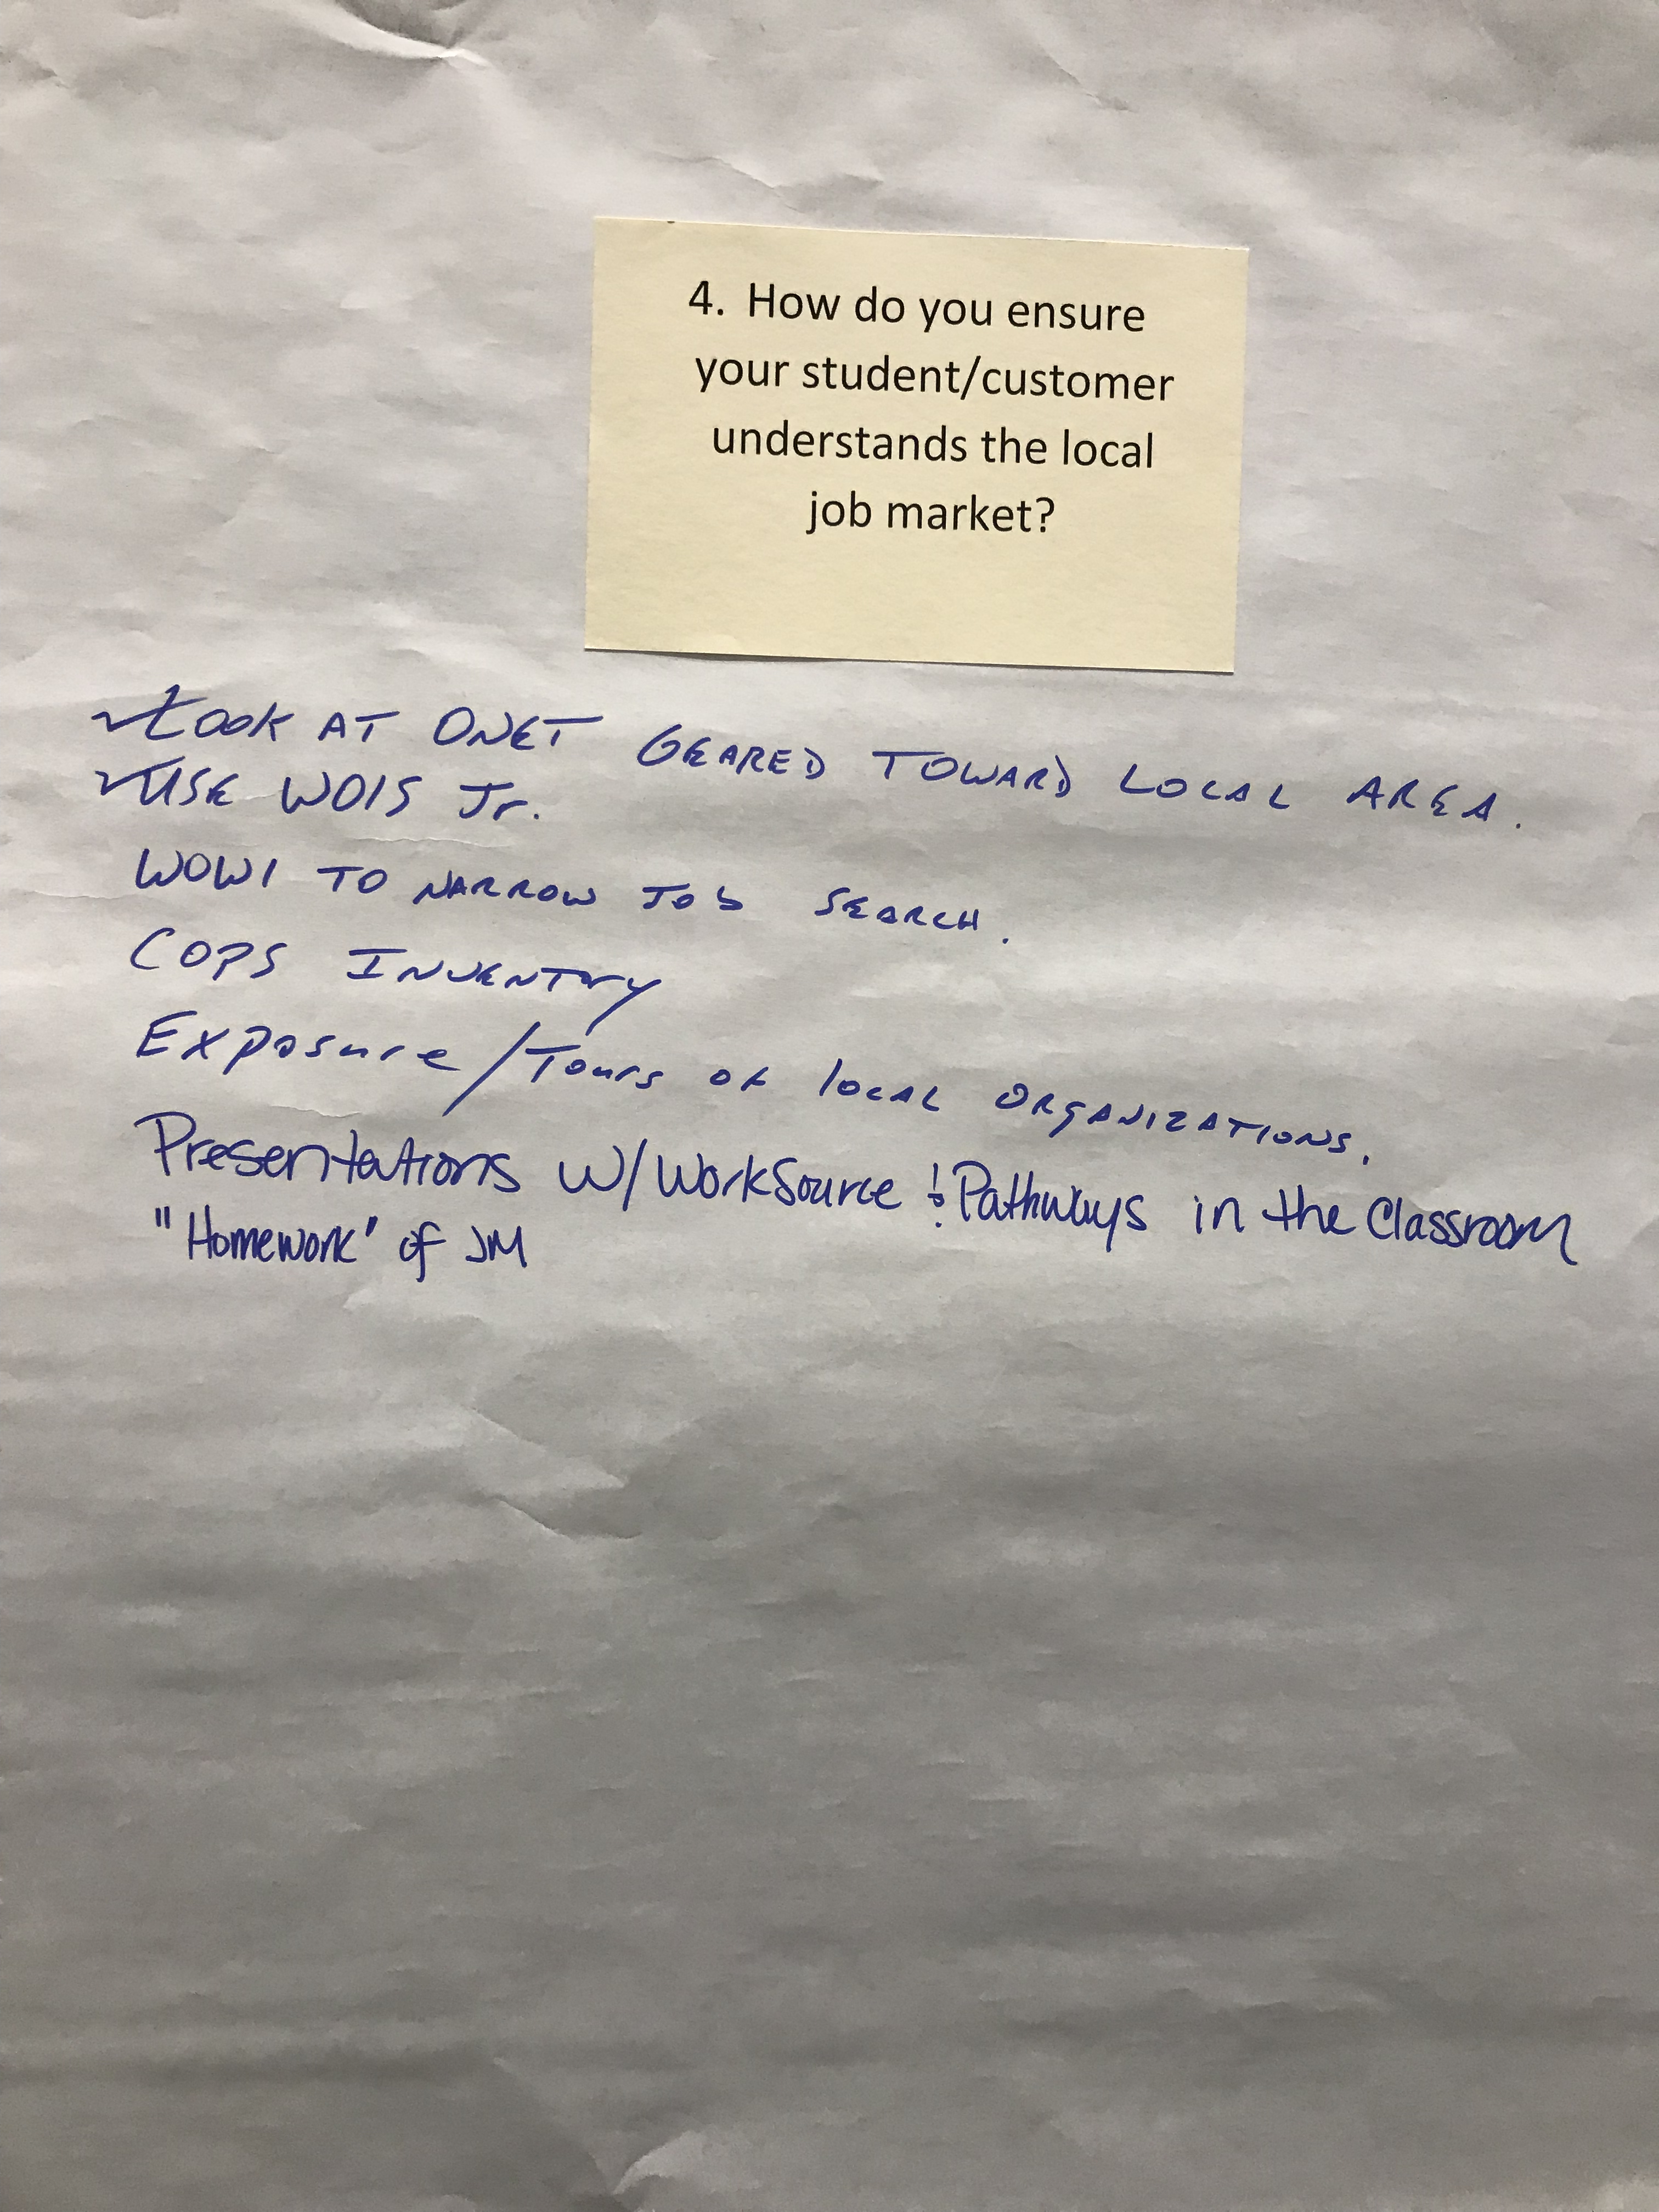 4. How do you ensure
your student/customer
understands the local
job market?
✓LOOK AT ONET GEARED TOWARD LOCAL AREA.
✓USE WOIS Jr.
WOWI TO NARROW JOB SEARCH.
COPS INVENTORY
Exposure/Tours of local ORGANIZATIONS.
Presentations w/WorkSource & Pathways in the Classroom
"Homework" of JM